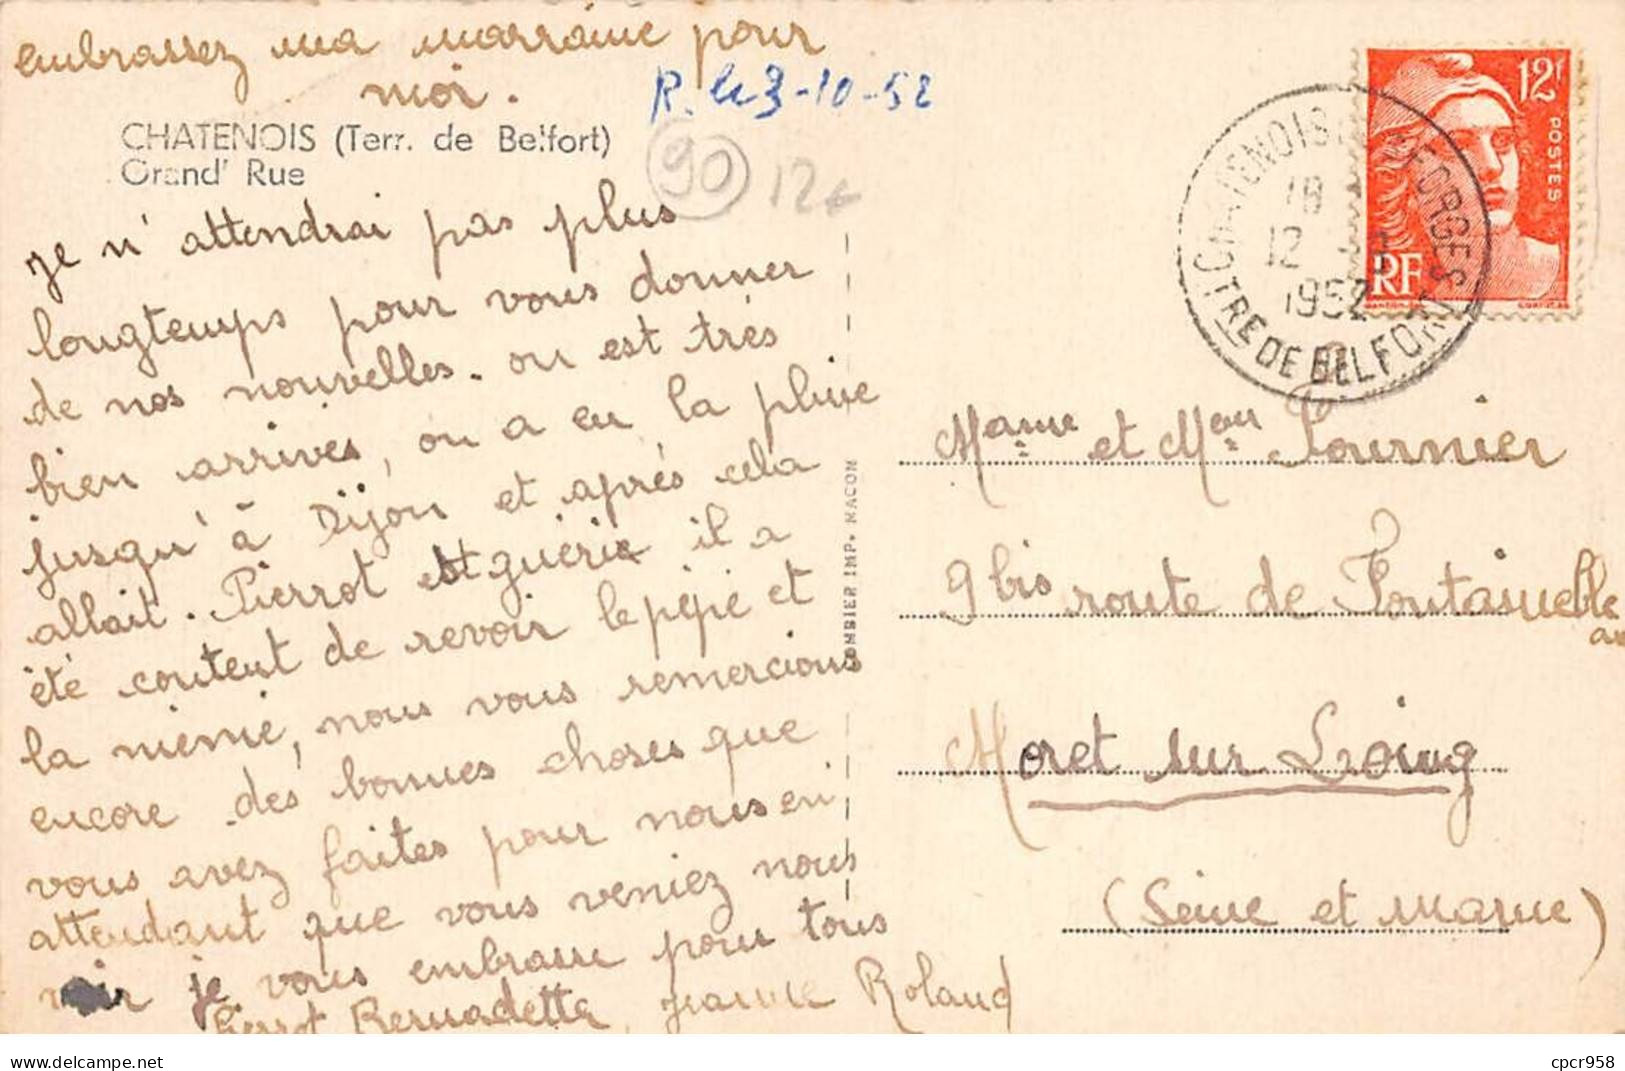 embrassez ma marraine pour
moi.
R. le 3-10-52
CHATENOIS (Terr. de Belfort)
Grand' Rue
90
12€
je n'attendrai pas plus
longtemps pour vous donner
de nos nouvelles. on est très
bien arrivés, on a eu la pluie
jusqu'à Dijon et après cela
allait. Pierrot est guéri il a
été content de revoir le pépé et
la mémé, nous vous remercions
encore des bonnes choses que
vous avez faites pour nous en
attendant que vous veniez nous
voir je vous embrasse pour tous
Pierrot Bernadette, Jeanne Roland
COMBIER IMP. MACON
12F
POSTES
RF
CHATENOIS LES FORGES
18
12
1952
TRE DE BELFORT
Mame et Meur Fournier
9 bis route de Fontainebleau
Moret sur Loing
(Seine et Marne)
cpcr958